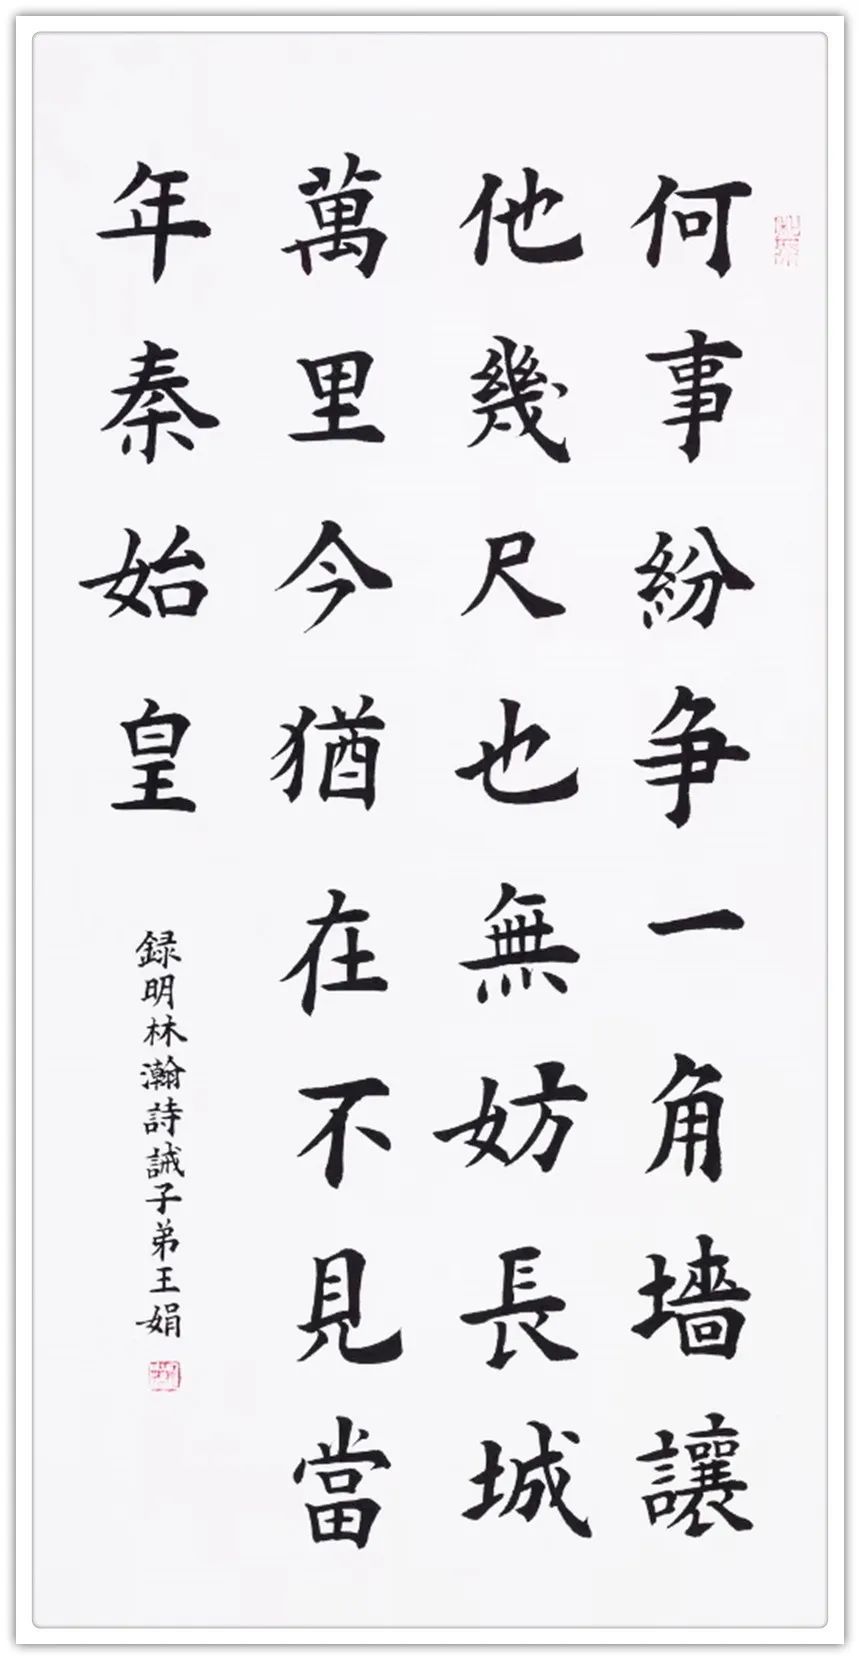 何事紛争一角墻讓
他幾尺也無妨長城
萬里今猶在不見當
年秦始皇
録明林瀚詩誡子弟王娟